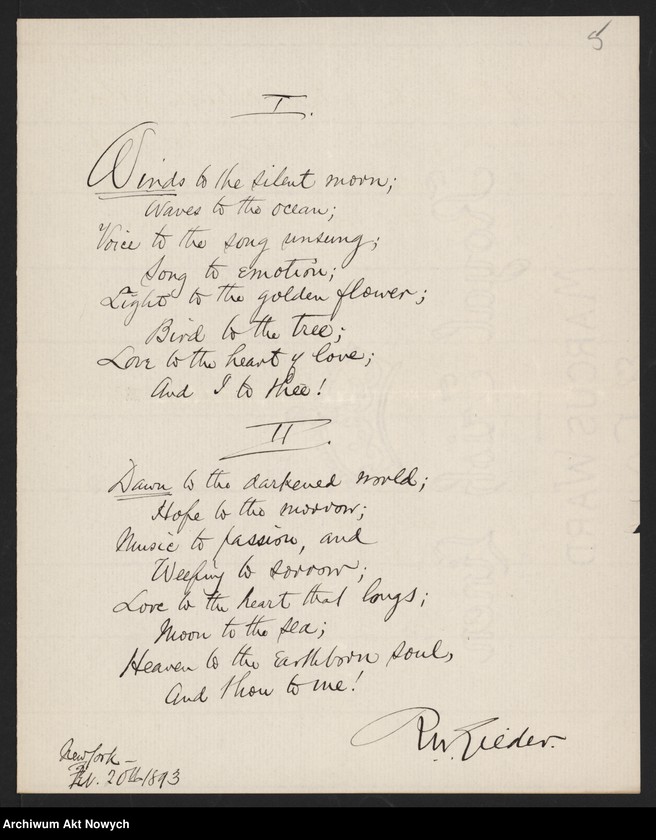 5
I.
Winds to the silent morn;
Waves to the ocean;
Voice to the song unsung;
Song to emotion;
Light to the golden flower;
Bird to the tree;
Love to the heart of love;
And I to thee!
II.
Dawn to the darkened world;
Hope to the morrow;
Music to passion, and
Weeping to sorrow;
Love to the heart that longs;
Moon to the sea;
Heaven to the Earthborn soul,
And thou to me!
R. W. Gilder.
New York –
Feb. 20th 1893
MARCUS WARD
Archiwum Akt Nowych